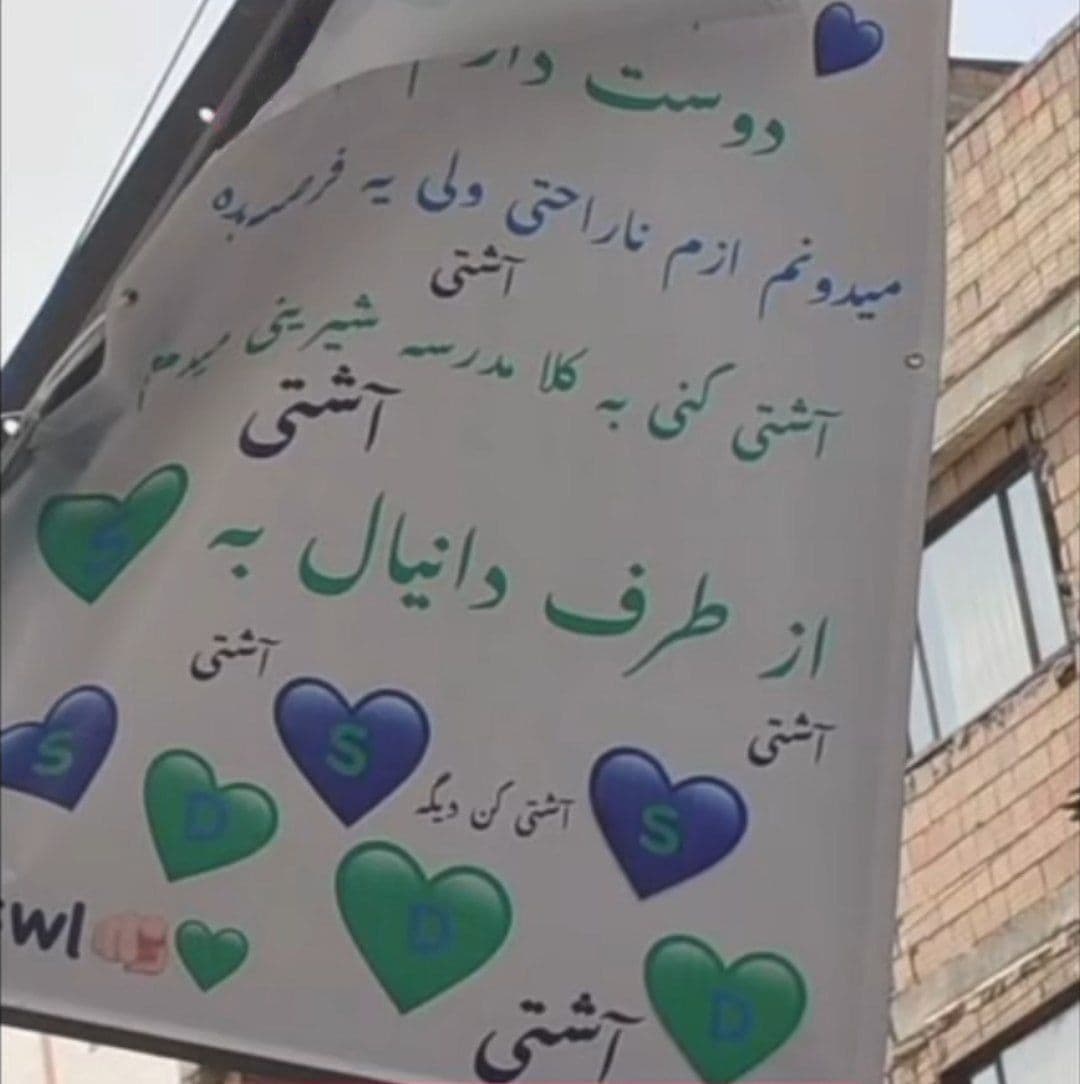 دوست دارم
میدونم ازم ناراحتی ولی یه فرصت بده
آشتی
آشتی کنی به کلا مدرسه شیرینی میدم
آشتی
از طرف دانیال به S
آشتی
آشتی
S
S
S
آشتی کن دیگه
D
D
D
آشتی